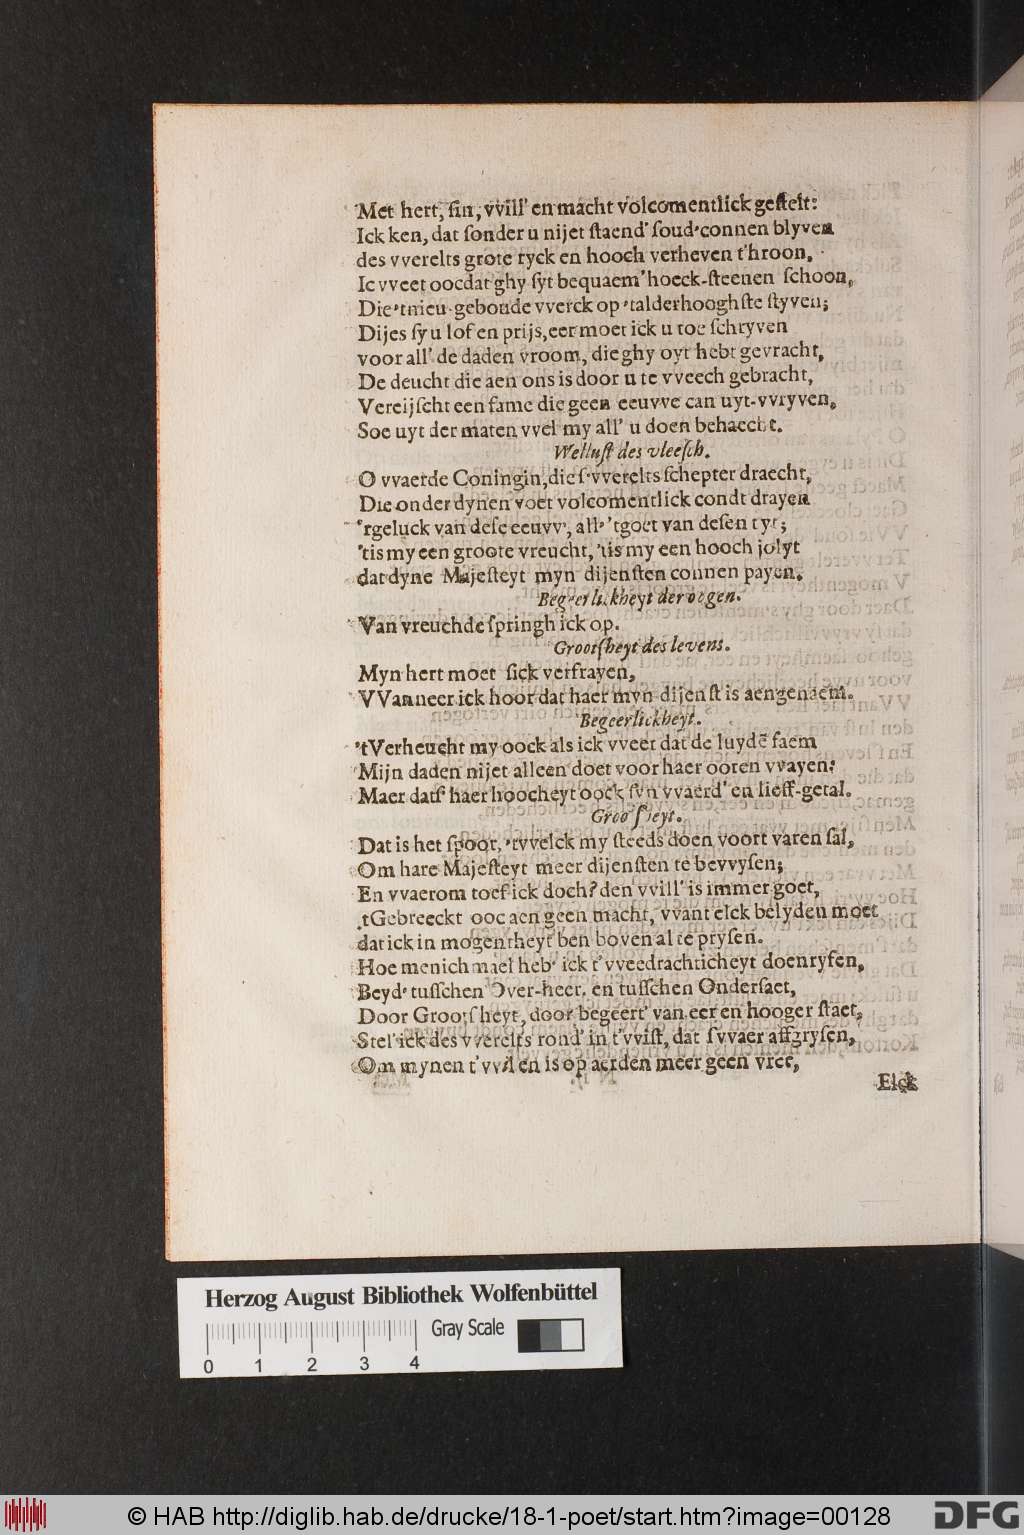 Met hert, ſin, vvill' en macht volcomentlick geſtelt:
Ick ken, dat ſonder u nijet ſtaend' ſoud' connen blyven
des vverelts grote ryck en hooch verheven t'hroon,
Ic vveet oocdat ghy ſyt bequaem' hoeck-ſteenen ſchoon,
Die 'tnieu-geboude vverck op 'talderhooghſte ſtyven;
Dijes ſy u lof en prijs, eer moet ick u toe ſchryven
voor all' de daden vroom, die ghy oyt hebt gevracht,
De deucht die aen ons is door u te vveech gebracht,
Vereijſcht een fame die geen eeuvve can uyt-vvryven,
Soe uyt der maten vvel my all' u doen behaecht.
Welluſt des vleeſch.
O vvaerde Coningin, die ſ'vverelts ſchepter draecht,
Die onder dynen voet volcomentlick condt drayen
'tgeluck van deſe eeuvv', all' 'tgoet van deſen tyt;
'tis my een groote vreucht, 'tis my een hooch jolyt
dat dyne Majeſteyt myn dijenſten connen payen.
Begeerlickheyt der oogen.
Van vreuchde ſpringh ick op.
Grootſheyt des levens.
Myn hert moet ſick verfrayen,
VVanneer ick hoor dat haer myn dijenſt is aengenaem.
Begeerlickheyt.
'tVerheucht my oock als ick vveet dat de luydē faem
Mijn daden nijet alleen doet voor haer ooren vvayen:
Maer datſ' haer hoocheyt oock ſyn vvaerd' en lieff-getal.
Grootſheyt.
Dat is het ſpoor, 'tvvelck my ſteeds doen voort varen ſal,
Om hare Majeſteyt meer dijenſten te bevvyſen;
En vvaerom toef ick doch? den vvill' is immer goet,
'tGebreeckt ooc aen geen macht, vvant elck belyden moet
dat ick in mogentheyt ben boven al te pryſen.
Hoe menichmael heb' ick t'vveedrachticheyt doen ryſen,
Beyd' tuſſchen Over-heer, en tuſſchen Onderſaet,
Door Grootſheyt, door begeert' van eer en hooger ſtaet,
Stel' ick des vverelts rond' in t'vviſt, dat ſvvaer affgryſen,
Om mynen t'vvil en is op aerden meer geen vree,
Elck
Herzog August Bibliothek Wolfenbüttel
Gray Scale
0 1 2 3 4
© HAB http://diglib.hab.de/drucke/18-1-poet/start.htm?image=00128
DFG